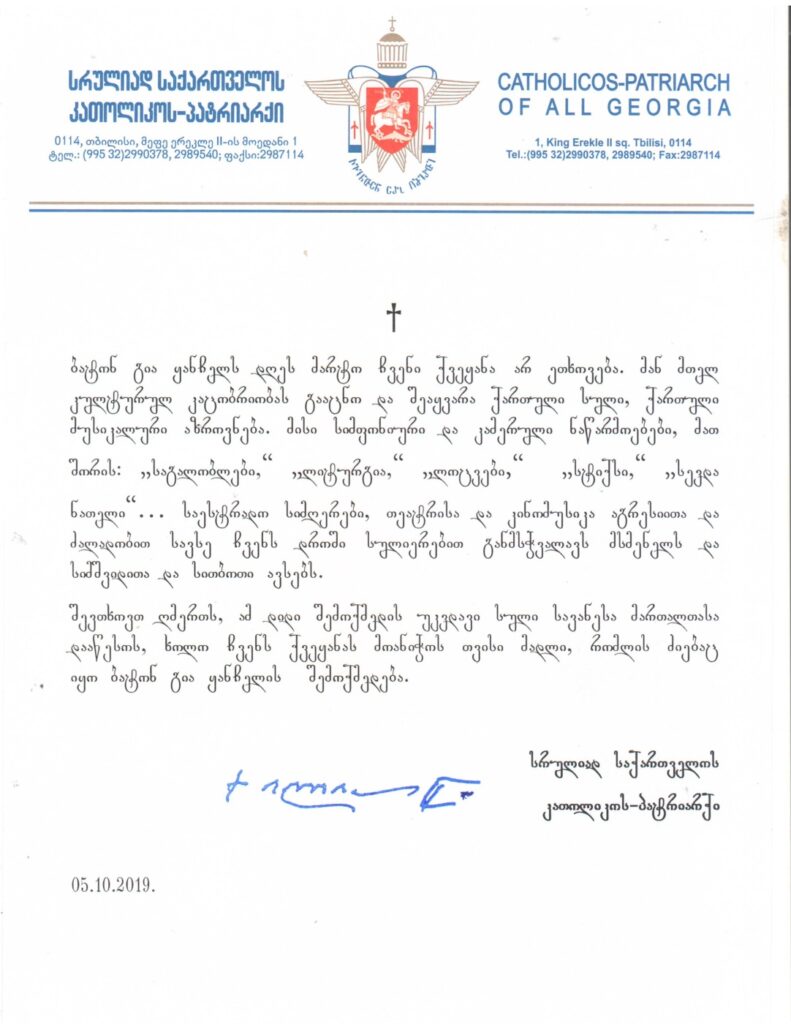 სრულიად საქართველოს
კათოლიკოს-პატრიარქი
0114, თბილისი, მეფე ერეკლე II-ის მოედანი 1
ტელ.: (995 32)2990378, 2989540; ფაქსი:2987114
CATHOLICOS-PATRIARCH
OF ALL GEORGIA
1, King Erekle II sq. Tbilisi, 0114
Tel.:(995 32)2990378, 2989540; Fax:2987114
ბატონ გია ყანჩელს დღეს მარტო ჩვენი ქვეყანა არ ეთხოვება. მან მთელ
კულტურულ კაცობრიობას გააცნო და შეაყვარა ქართული სული, ქართული
მუსიკალური აზროვნება. მისი სიმფონიური და კამერული ნაწარმოებები, მათ
შორის: „საგალობლები,“ „ლიტურგია,“ „ლოცვები,“ „სტიქსი,“ „სევდა
ნათელი“... საესტრადო სიმღერები, თეატრისა და კინომუსიკა აგრესიითა და
ძალადობით სავსე ჩვენს დროში სულიერებით განმსჭვალავს მსმენელს და
სიმშვიდითა და სითბოთი ავსებს.
შევთხოვთ ღმერთს, ამ დიდი შემოქმედის უკვდავი სული სავანესა მართალთასა
დააწესოს, ხოლო ჩვენს ქვეყანას მოანიჭოს თვისი მადლი, რომლის ძიებაც
იყო ბატონ გია ყანჩელის შემოქმედება.
სრულიად საქართველოს
კათოლიკოს-პატრიარქი
05.10.2019.